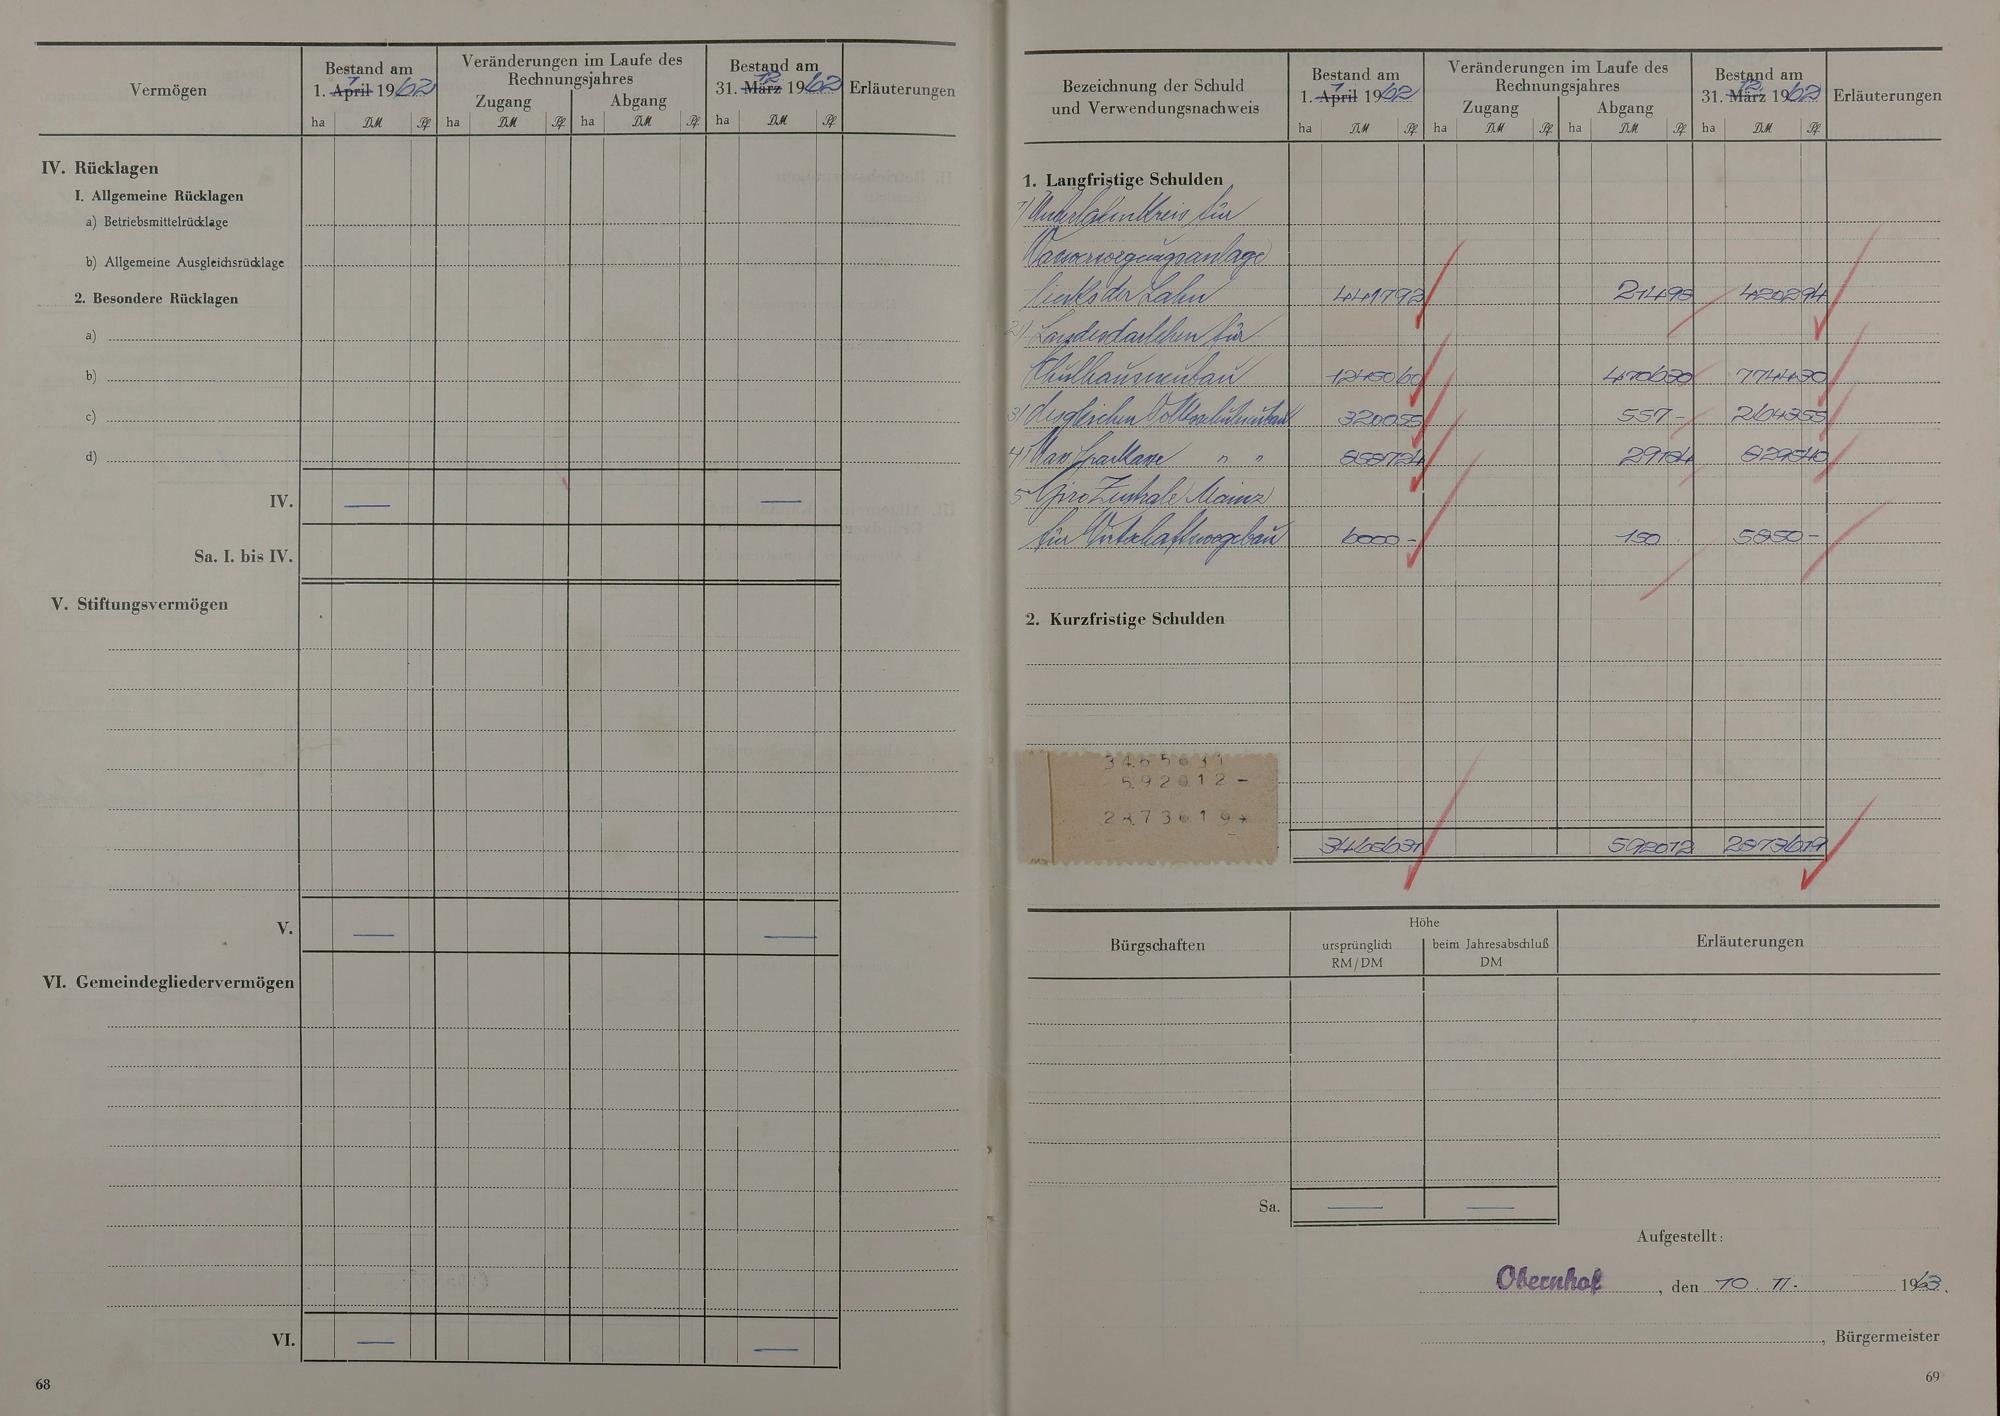 Vermögen
Bestand am
1. April 1962
1
Veränderungen im Laufe des
Rechnungsjahres
Zugang
Abgang
Bestand am
31. März 1962
12
Erläuterungen
ha DM Pf ha DM Pf ha DM Pf ha DM Pf
IV. Rücklagen
1. Allgemeine Rücklagen
a) Betriebsmittelrücklage
b) Allgemeine Ausgleichsrücklage
2. Besondere Rücklagen
a)
b)
c)
d)
IV. — —
Sa. I. bis IV.
V. Stiftungsvermögen
V. — —
VI. Gemeindegliedervermögen
VI. — —
68
Bezeichnung der Schuld
und Verwendungsnachweis
Bestand am
1. April 1962
1
Veränderungen im Laufe des
Rechnungsjahres
Zugang
Abgang
Bestand am
31. März 1962
12
Erläuterungen
ha DM Pf ha DM Pf ha DM Pf ha DM Pf
1. Langfristige Schulden
1) Unterlahnkreis für
links der Lahn 4417 92 214 98 4202 94
2) Landesdarlehen für
Schulhausneubau 12450 60 4706 30 7744 30
3) desgleichen 3200 55 557 - 2643 55
4) Nass. Sparkasse " " 8587 24 291 84 8295 40
5 Giro Zentrale Mainz
für Wirtschaftswegebau 6000 - 150 5850 -
2. Kurzfristige Schulden
3465631
592012 -
2873619 *
34656 31 5920 12 28736 19
Bürgschaften
Höhe
ursprünglich
RM/DM
beim Jahresabschluß
DM
Erläuterungen
Sa. — —
Aufgestellt:
Obernhof, den 10. II. 1963.
, Bürgermeister
69